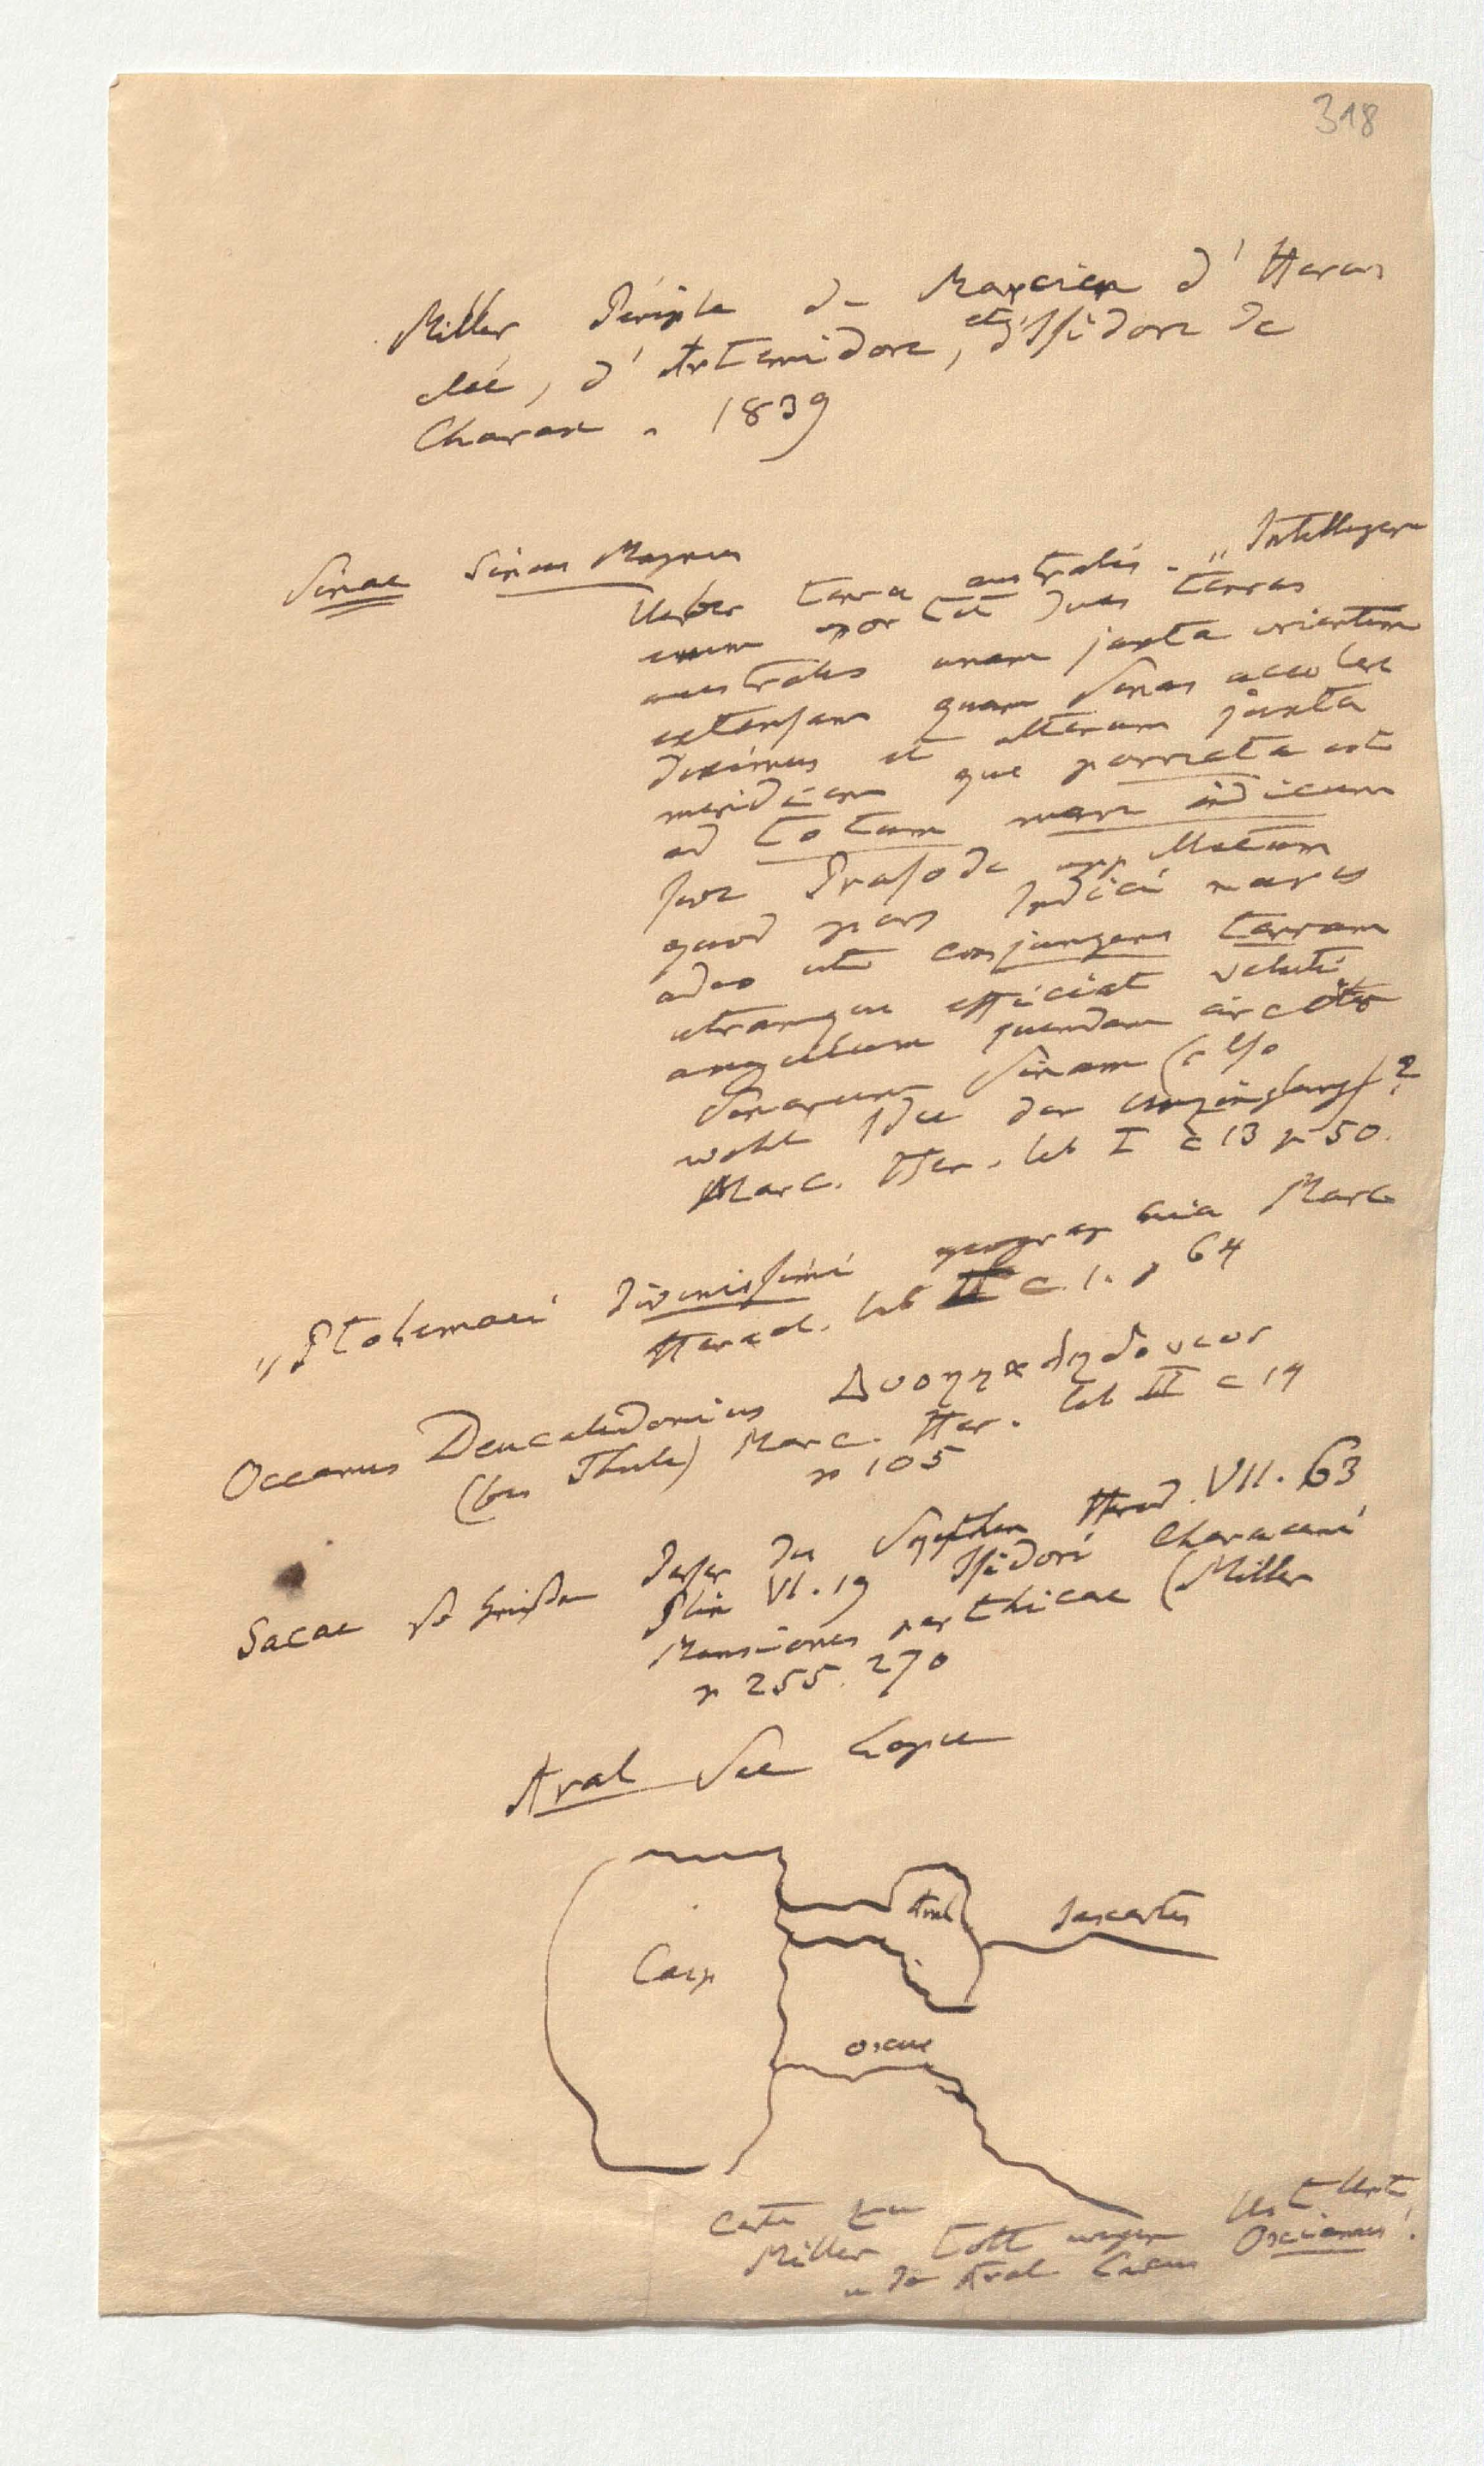 318
Miller Périple de Marcien d'Herac
lée, d'Artemidore, et d'Isidore de
Charax. 1839
Sinae Sinus Magnus
Ueber terra australis. „Intelligere
enim oportet duas terras
australes unam juxta orientem
extensam quam Sinas accolere
diximus et alteram juxta
meridiem que porrecta est
ad totum mare indicum
sive Prasode appellatum
quod pars Indici maris
adeo ut conjungens terram
utramque efficiat veluti
angulum quendam circa
Sinarum Sinam (also
wohl Idee der Umzinglung?
Marc. Her. lib I c 13 p 50.
„Ptolemaei divinissimi geographia Marc
Heracl. lib II c. 1. p 64
Oceanus Deucaledonius Δυοηκαληδονιος
(bei Thule) Marc. Her. lib II c 14
p 105
Sacae so heissen Perser die Scythen Herod. VII. 63
Plin VI. 19 Isidori Characeni
Mansiones parthicae (Miller
p 255. 270
Aral See
Aral
Jaxartes
Casp
Oxus
Carte zu
Miller toll wegen Ust Urt
u da Aral Lacus Oxianus!